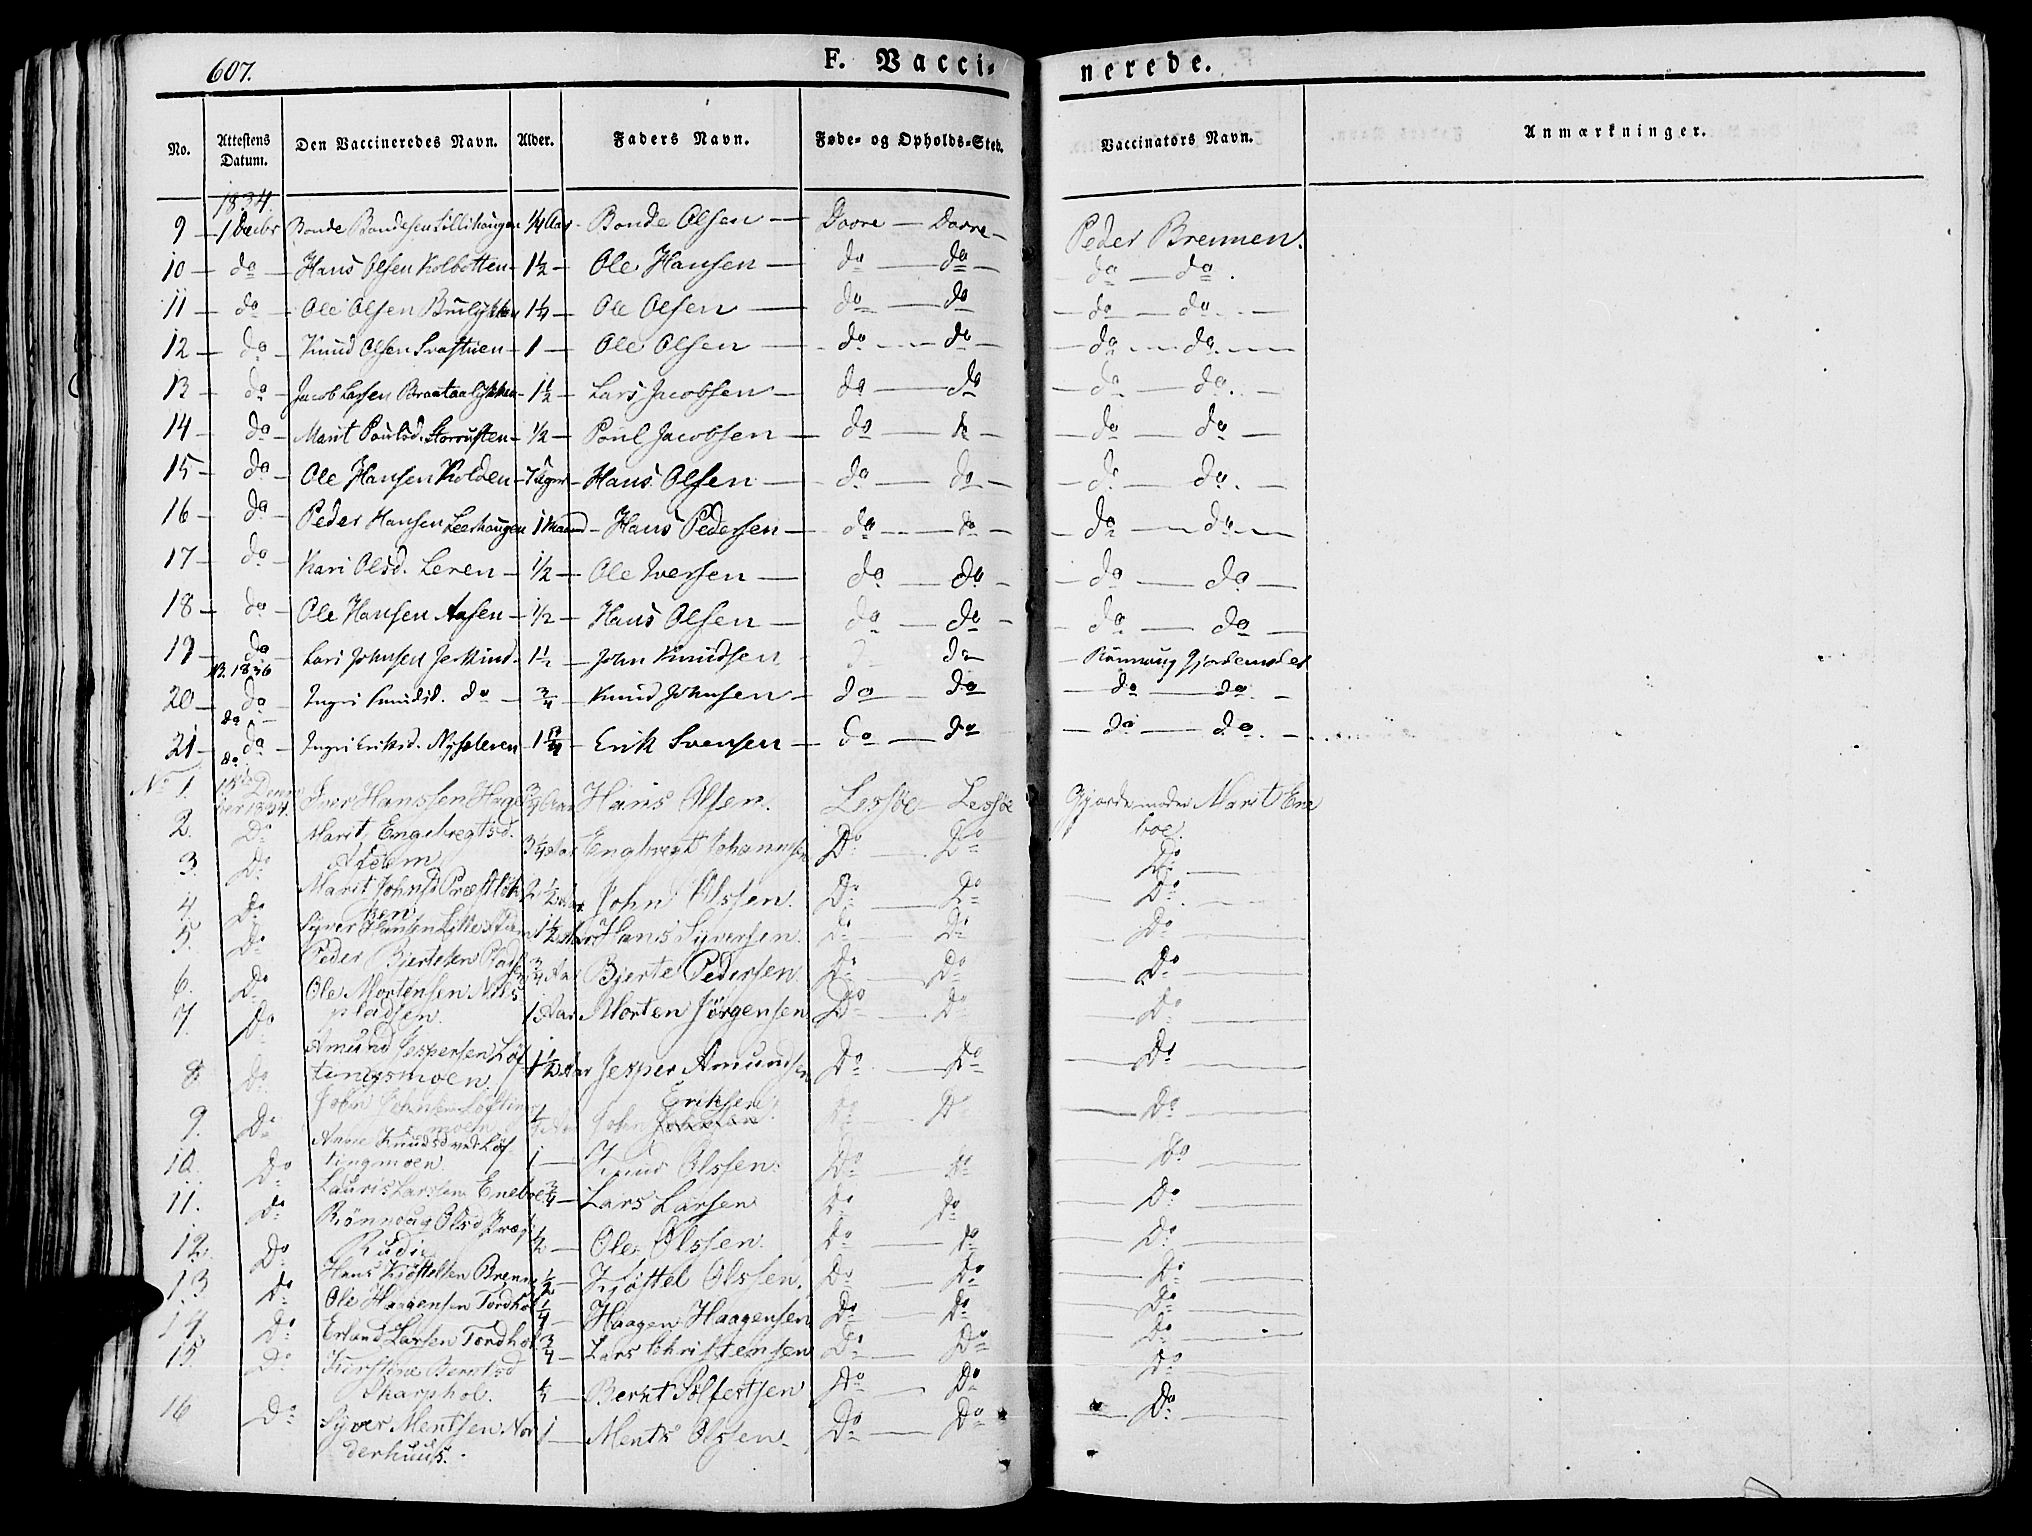 607. F. Vacci- nerede.
No. Attestens Datum. Den Vaccineredes Navn. Alder. Faders Navn. Føde- og Opholds-Sted. Vaccinators Navn. Anmærkninger.
1834.
9 1 Decbr Bonde Bondesen Lillihaugen 1/4 Aar Bonde Olsen Dovre Dovre Peder Brennen.
10 do Hans Olsen Kolbotten 1 1/2 Ole Hansen do do do do
11 do Ole Olsen 1 1/4 Ole Olsen do do do do
12 do Knud Olsen 1 Ole Olsen do do do do
13 do Jacob Larsen Braataalykken 1 1/2 Lars Jacobsen do do do do
14 do Marit Poulsd. Storrusten 1/2 Poul Jacobsen do do do do
15 do Ole Hansen Kolden 7 Hans Olsen do do do do
16 do Peder Hansen Leerhaugen 1 Maaned Hans Pedersen do do do do
17 do Kari Olsd. Leren 1/2 Ole Iversen do do do do
18 do Ole Hansen Aasen 1/2 Hans Olsen do do do do
19 do Lars Johnsen Jerkind 1 1/2 John Knudsen do do Rønnaug Gjordemoder
1836
20 do Ingri Knudsd. do 3/4 Knud Johnsen do do do do
do
21 do Ingri Eriksd. Nysæteren 1 Erik Svensen do do do do
do
No 1. 15de Decem-
ber 1834. Iver Hanssen Hage 3/4 Aar Hans Olsen. Lessøe Lessøe Gjordemoder Marit Ene
boe.
2. Do Marit Engebregtsd. 3 1/4 Aar Engbregt Johannsen Do Do Do
3. Do Marit Johnsd Præstløk
ken 2 1/2 Aar John Olssen. Do Do Do
4. Do Syver Hansen 1 1/2 Aar Hans Syversen. Do Do Do
5. Do Peder Bjertelsen 3/4 Aar Bjerte Pedersen Do Do Do
6. Do Ole Mortensen Nils
pladsen. 1 Aar Morten Jørgensen Do Do Do
7. Do Amund Jespersen Løf
tingsmoen. 1 1/2 Aar Jesper Amundsen Do Do Do
8 Do John Løfting
moen John Eriksen Do Do Do
9. Do Anne Knudsd ved Løf
tingmoen. 1 Knud Olssen. Do Do Do
10. Do Lauris Larssen Eneboe 3/4 Lars Larsen Do Do Do
11. Do Rønnoug Olsd
Rudi 1/2 Ole Olssen. Do Do Do
12. Do Hans Kjøstelsen Brenn 1/2 Kjøstel Olssen. Do Do Do
13 Do Ole Haagensen Tordhol 1/4 Haagen Haagensen Do Do Do
14 Do Erland Larsen Tordhol 3/4 Lars Christensen Do Do Do
15. Do Kjerstine Berntsd
Skarphol. Bernt Solfestsen Do Do Do
16 Do Syver Mentsen Nor
derhuus. 1 Ments Olssen. Do Do Do